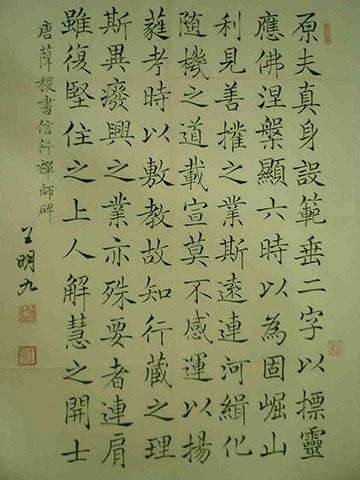 原夫真身設範垂二字以標靈
應佛涅槃顯六時以為固崛山
利見善權之業斯遠連河緝化
隨機之道載宣莫不感運以揚
蕤考時以敷教故知行藏之理
斯異廢興之業亦殊要者連肩
雖復堅住之上人解慧之開士
唐薛稷書信行禪師碑
王明九